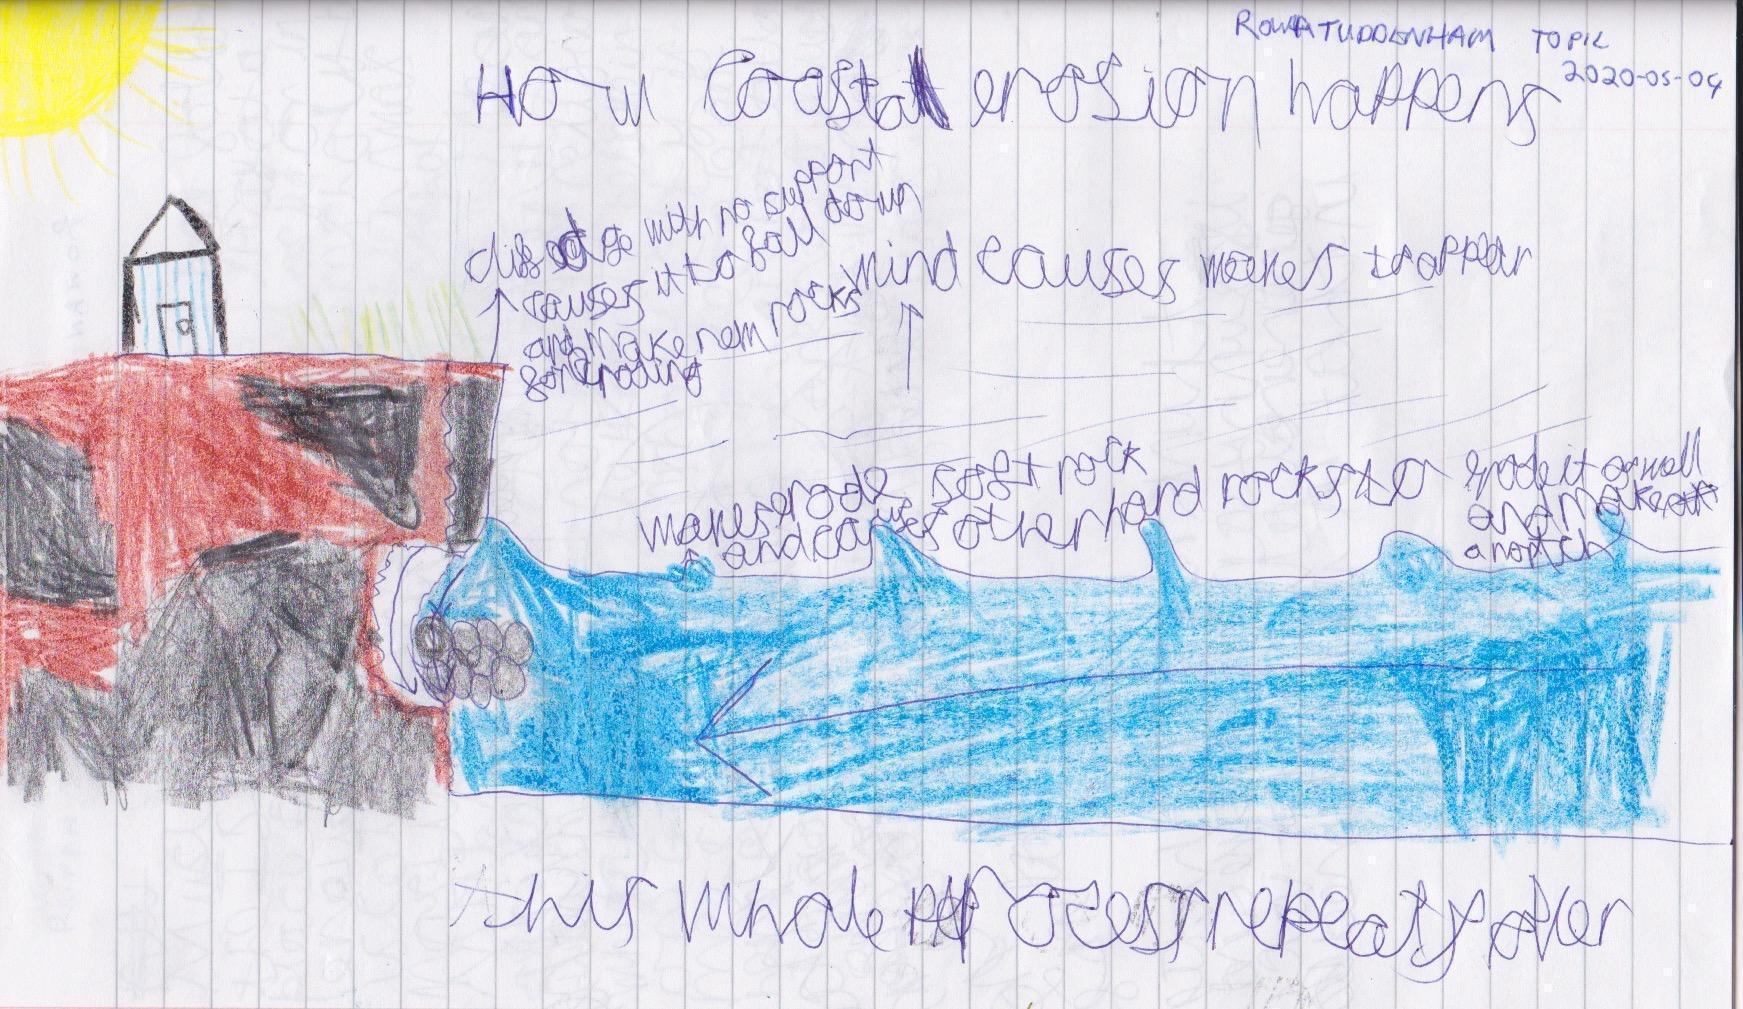 ROWA TUDDENHAM TOPIC
2020-05-04
How Coastal erosion happens
clifs edge with no support
causes it to fall down
and make new rocks
for eroding
wind causes waves to appear
waves erode soft rock
and causes other hard rocks to
erode it as well
and make
a notch
this whole process repeats over